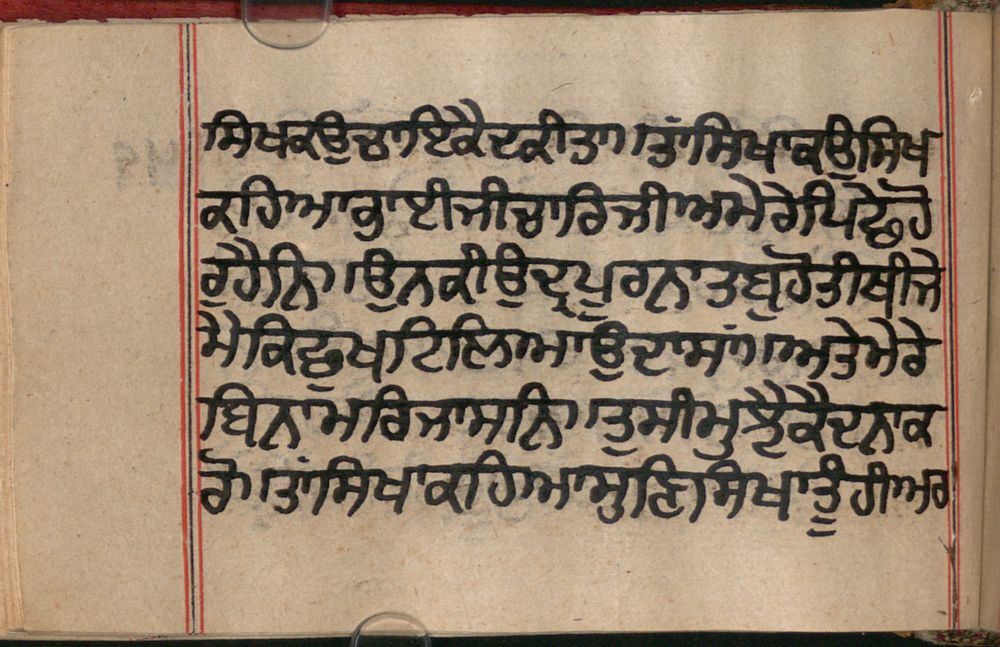 ਸਿਖਕਉਚਾਇਕੈਦਕੀਤਾ॥ਤਾਂਸਿਖਾਕਉਸਿਖ
ਕਹਿਆਭਾਈਜੀਚਾਰਿਜੀਅਮੇਰੇਪਿਛੇਹੋ
ਰੁਹੈਨਿ॥ਉਨਕੀਉਦ੍ਰਪੁਰਨਾਤਬੁਹੋਤੀਥੀਜੇ
ਮੈਕਿਛੁਖਟਿਲਿਆਉਦਾਸਾਂ॥ਅਤੇਮੇਰੇ
ਬਿਨਾਮਰਿਜਾਸਨਿ॥ਤੁਸੀਮੁਝੈਕੈਦਨਾਕ
ਰੋ॥ਤਾਂਸਿਖਾਕਹਿਆਸੁਣਿਸਿਖਾਤੂੰਹੀਅਰ